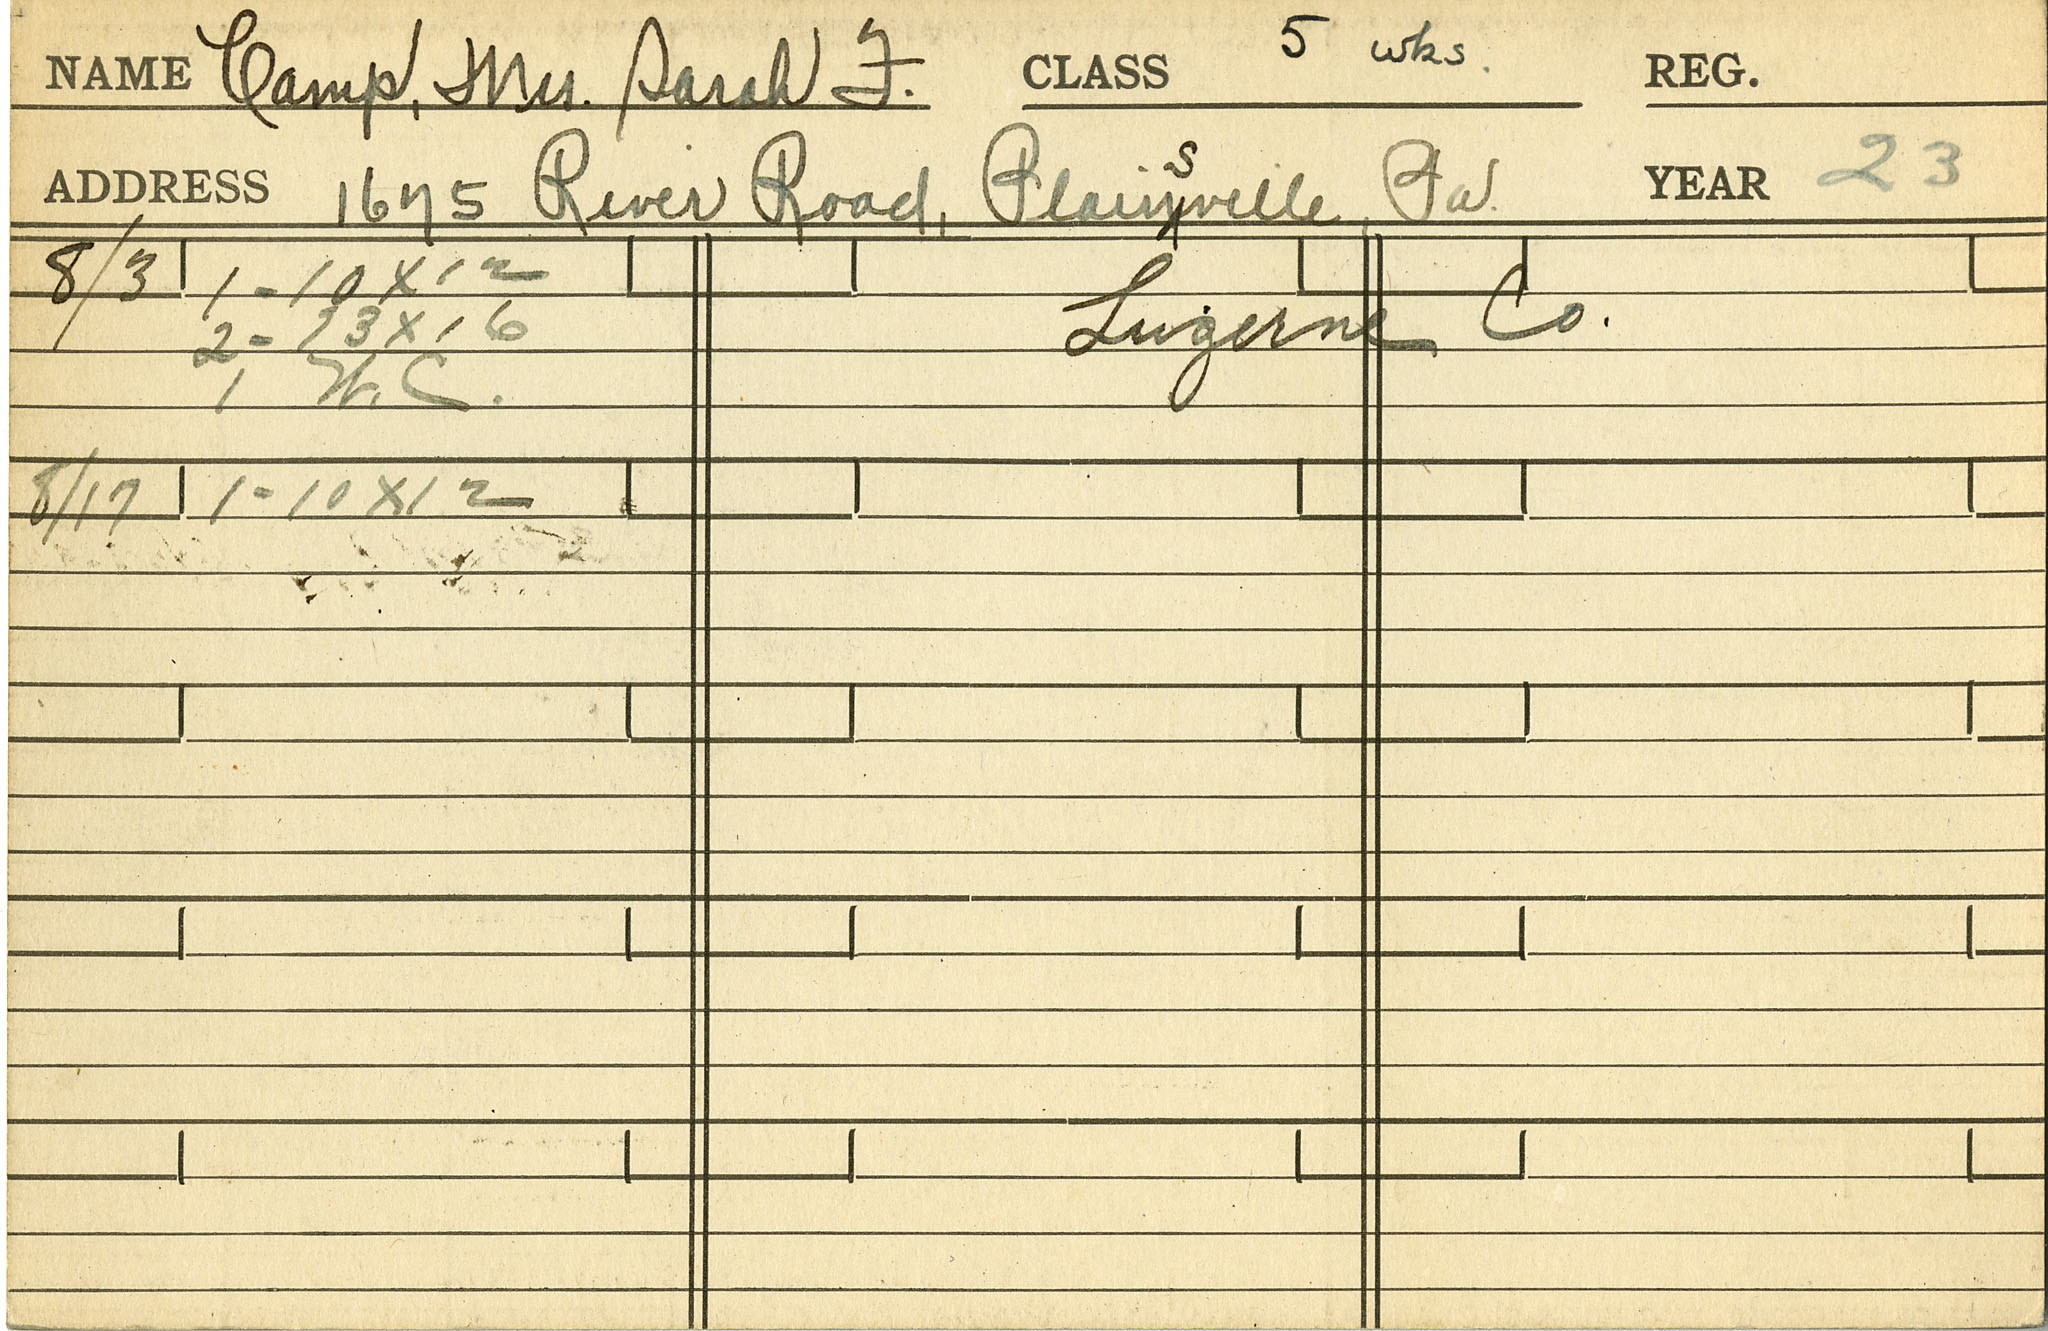 NAME Camp, Mrs. Sarah F. CLASS 5 wks. REG.
ADDRESS 1675 River Road, Plainsville, Pa. YEAR 23
8/3 1-10x12
2-13x16 Luzerne Co.
1 W.C.
8/17 1-10x12